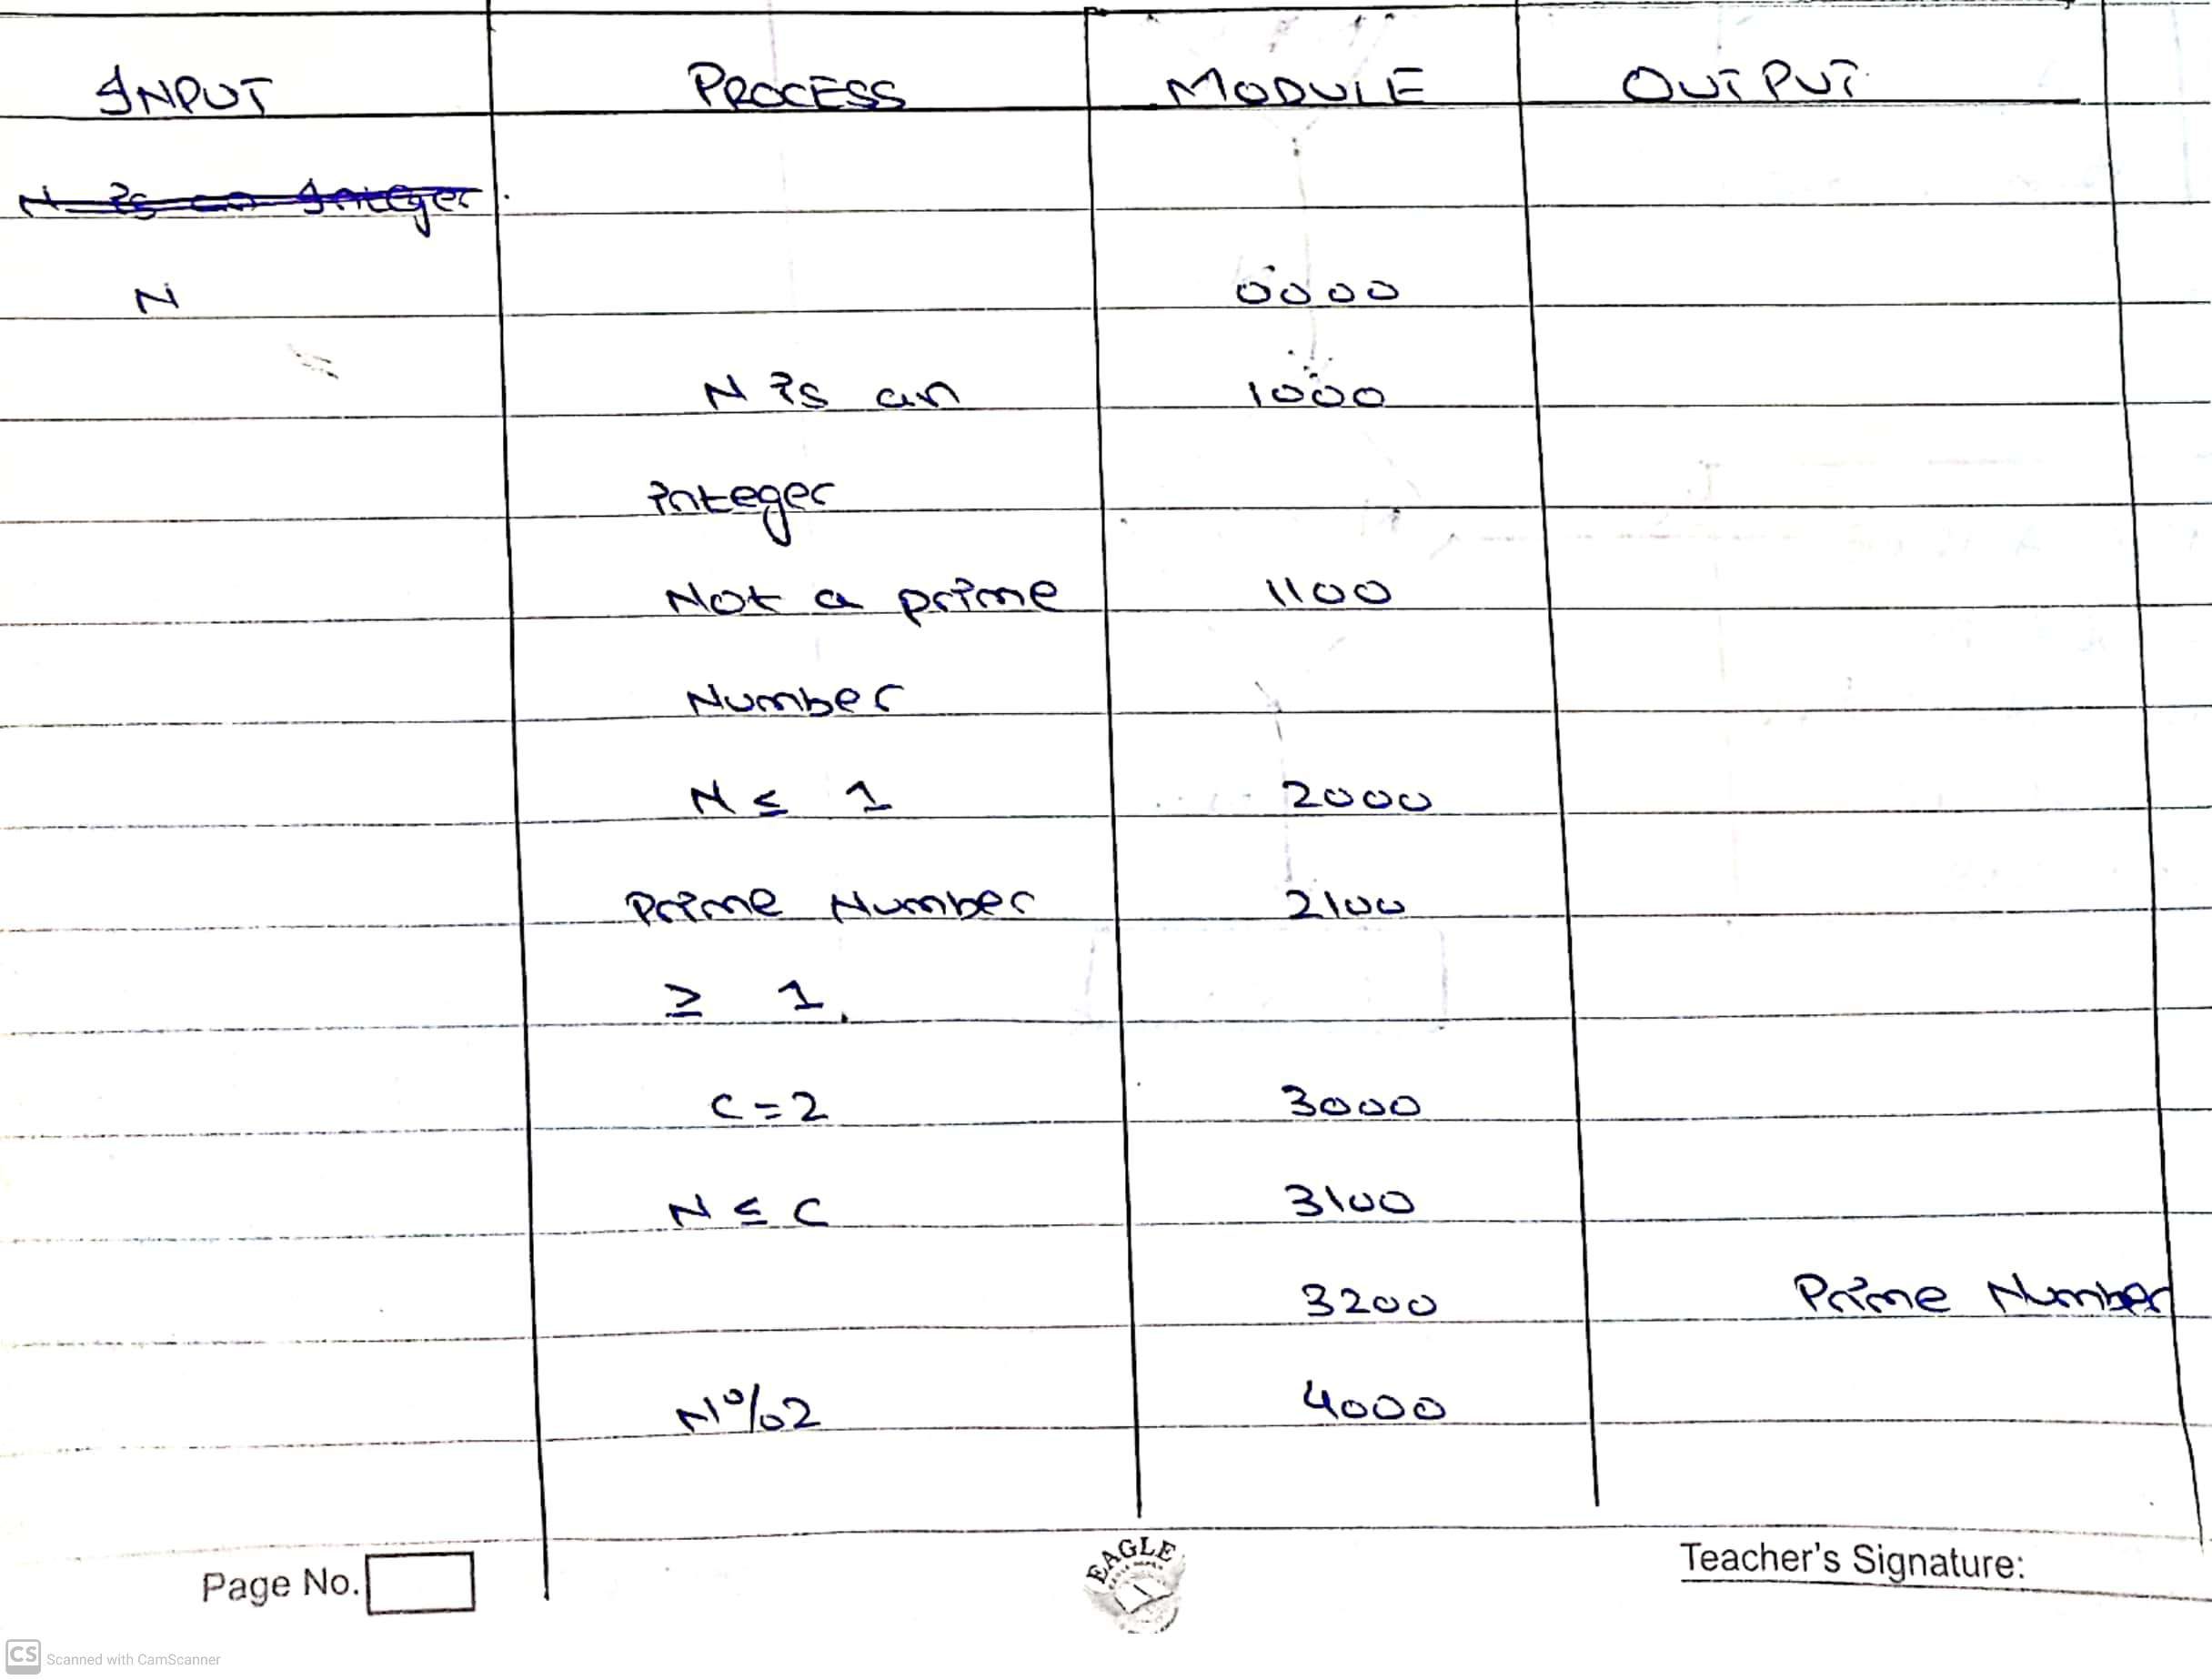 INPUT PROCESS MODULE OUTPUT
N is an Integer
N 0000
N is an 1000
integer
Not a prime 1100
Number
N ≤ 1 2000
Prime Number 2100
≥ 1.
C = 2 3000
N ≤ C 3100
3200 Prime Number
N%2 4000
Page No. EAGLE Teacher's Signature:
CS Scanned with CamScanner